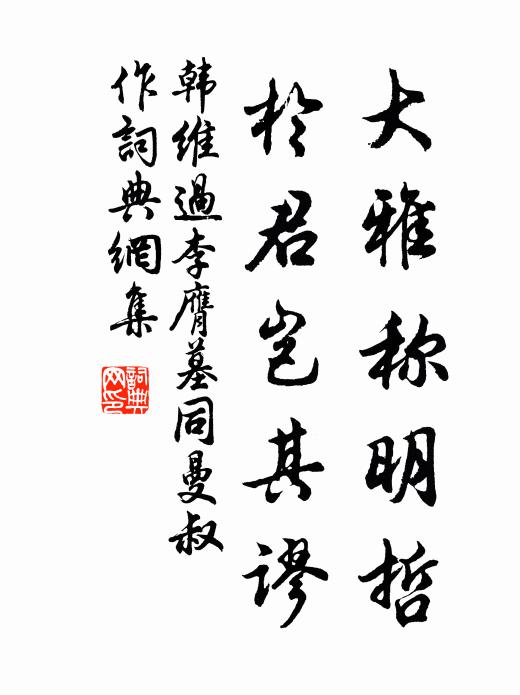 大雅称明哲
於君岂其谬
韩维過李膺墓同曼叔
作詞典網集
詞典網印